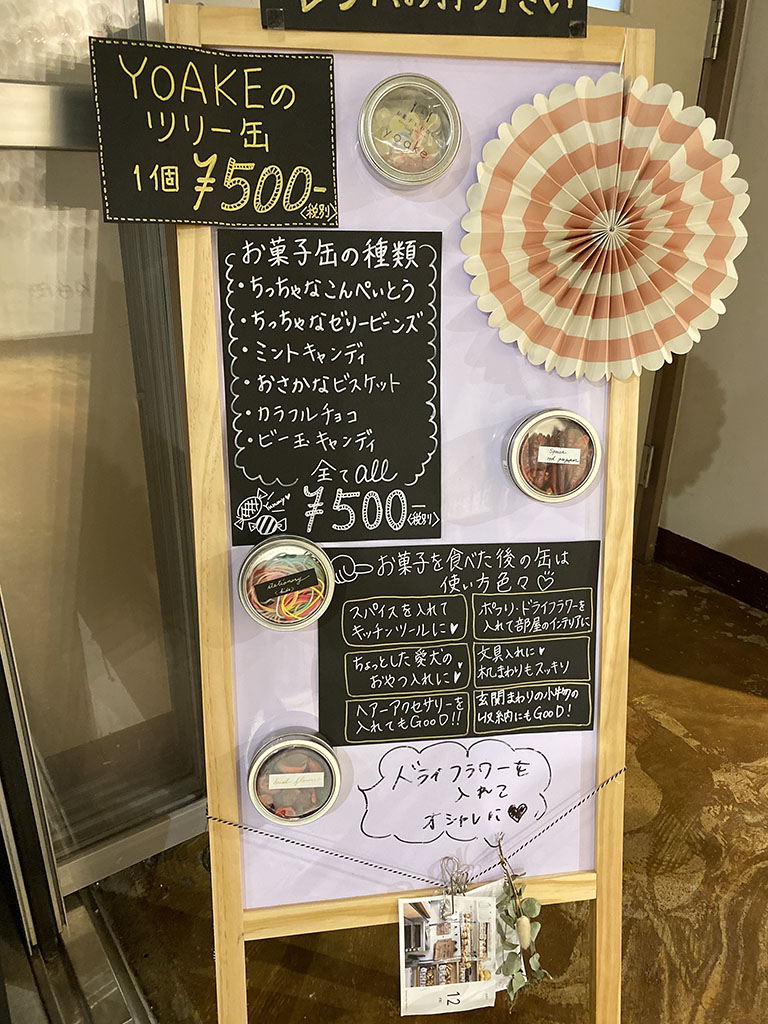 レジへお持ち下さい
YOAKEの
ツリー缶
1個 ¥500-
<税別>
yoake
お菓子缶の種類
・ちっちゃなこんぺいとう
・ちっちゃなゼリービーンズ
・ミントキャンディ
・おさかなビスケット
・カラフルチョコ
・ビー玉キャンディ
全てall
¥500-
<税別>
Spice
red pepper
お菓子を食べた後の缶は
使い方色々♡
stationery
スパイスを入れて
キッチンツールに♥
ポプリ・ドライフラワーを
入れて部屋のインテリアに
ちょっとした愛犬の
おやつ入れに♥
文具入れに♥
机まわりもスッキリ
ヘアーアクセサリーを
入れてもGooD!!
玄関まわりの小物の
収納にもGooD!
ドライフラワーを
入れて
オシャレに♥
12